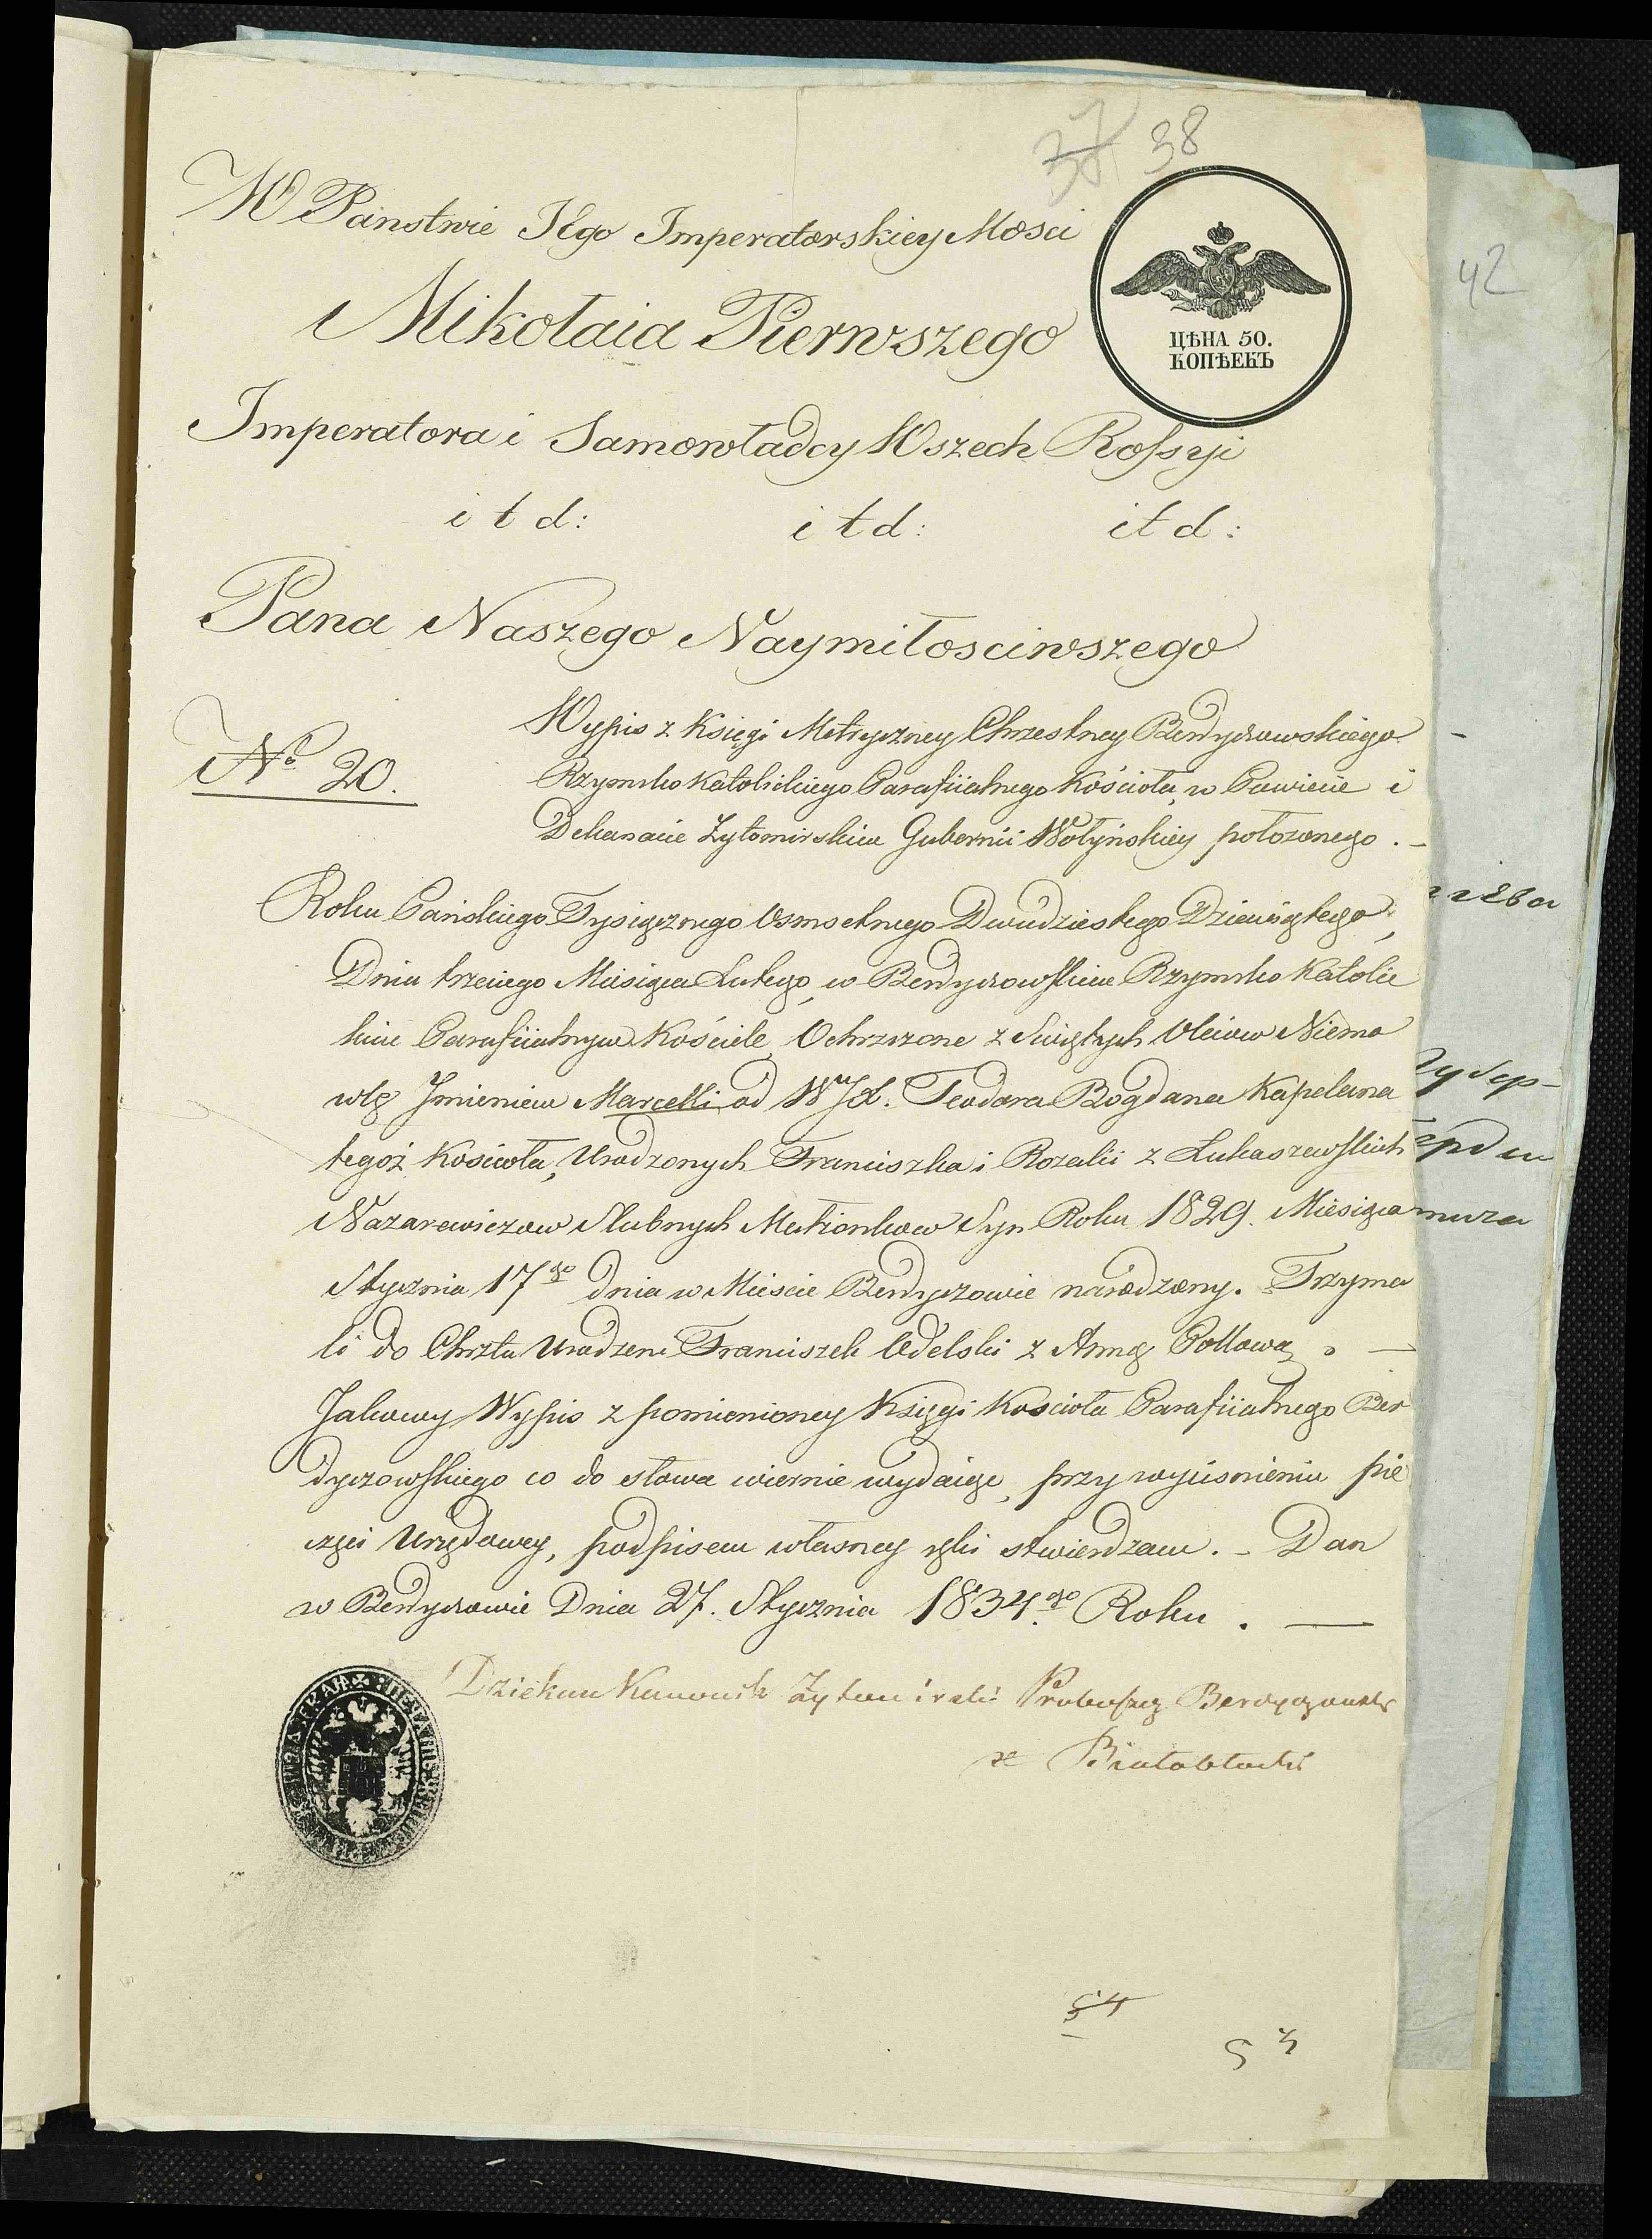 38
W Państwie Jego Imperatorskiey Mosci
Mikołaia Pierwszego
ЦѢНА 50.
КОПѢЕКЪ
42
Imperatora i Samowładcy Wszech Rossyi
i t d: i t d: i t d:
Pana Naszego Naymiłosciwszego
№ 20.
Wypis z Księgi Metryczney Chrzestney Berdyczowskiego
Rzymsko Katolickiego Parafiialnego Kościoła, w Powiecie i
Dekanacie Żytomirskim Gubernii Wołyńskiey położonego. –
Roku Pańskiego Tysiącznego Osmsetnego Dwudziestego Dziewiątego,
Dnia trzeciego Miesiąca Lutego, w Berdyczowskim Rzymsko Katolic
kim Parafiialnym Kościele, Ochrzczone z Swiętych Oleiow Niemo
wlę Jmieniem Marcelli od WJX. Teodora Bogdana Kapelana
tegoż Kościoła, Urodzonych Franciszka i Rozalii z Łukaszewskich
Nazarewiczow Slubnych Małżonkow Syn Roku 1829. Miesiąca
Stycznia 17go dnia w Mieście Berdyczowie narodzony. Trzyma
li do Chrztu Urodzeni Franciszek Odelski z Anną Pollową. –
Jakowy Wypis z pomienioney Księgi Kościoła Parafiialnego Ber
dyczowskiego co do słowa wiernie wydaiąc, przy wyciśnieniu pie
częci Urzędowey, podpisem własney ręki stwierdzam. – Dan
w Berdyczowie Dnia 27. Stycznia 1834go Roku. —
Dziekan Kanonik Żytomirski Proboszcz Berdyczowski
X Białobłocki
54
53